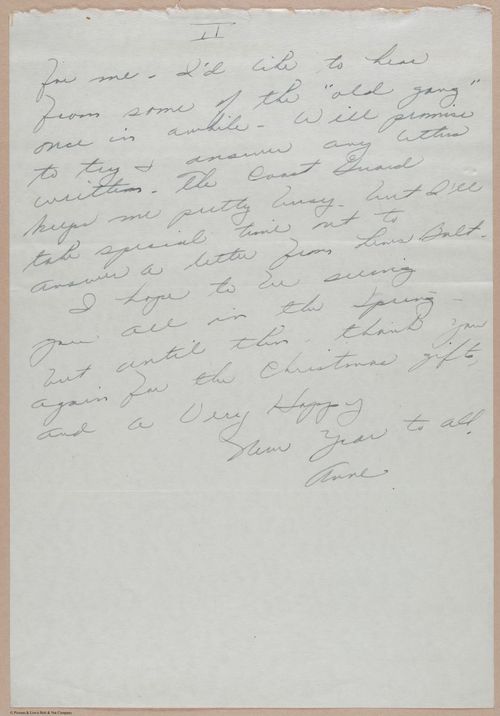 II
for me - I'd like to hear
from some of the "old gang"
once in awhile - Will promise
to try & answer any letters
written. The Coast Guard
keeps me pretty busy - but I'll
take special time out to
answer a letter from Lewis Bolt.
I hope to be seeing
you all in the Spring -
but until then, thank you
again for the Christmas gifts,
and a Very Happy
New Year to all.
Anne
© Pioneer & Lewis Bolt & Nut Company